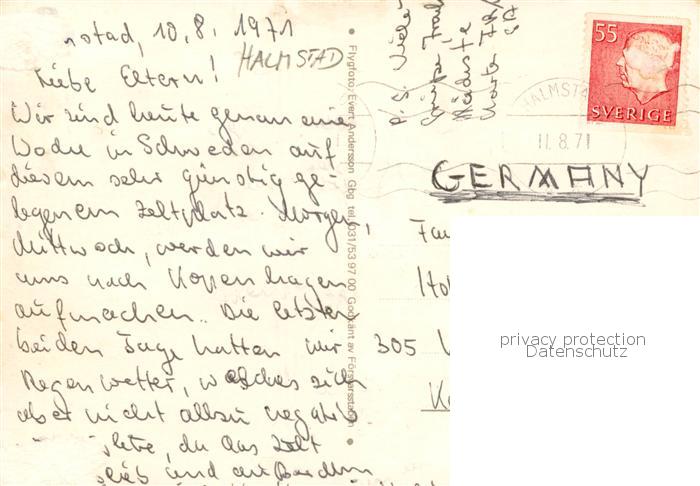 stad, 10.8.1971
HALMSTAD
Liebe Eltern!
Wir sind heute genau eine
Woche in Schweden auf
diesem sehr günstig ge-
legenem Zeltplatz. Morgen,
Mittwoch, werden wir
uns nach Kopenhagen
aufmachen. Die letzten
beiden Tage hatten wir
Regenwetter, welches sich
aber nicht allzu negativ
da das Zelt
und
● Flygfoto: Evert Andersson Gbg tel. 031/53 97 00 Godkänt av Försvarsstaben ●
P.S. Viele
Grüße
Nächste
Karte
55
SVERIGE
HALMSTA
11.8.71
GERMANY
Fam
305
privacy protection
Datenschutz